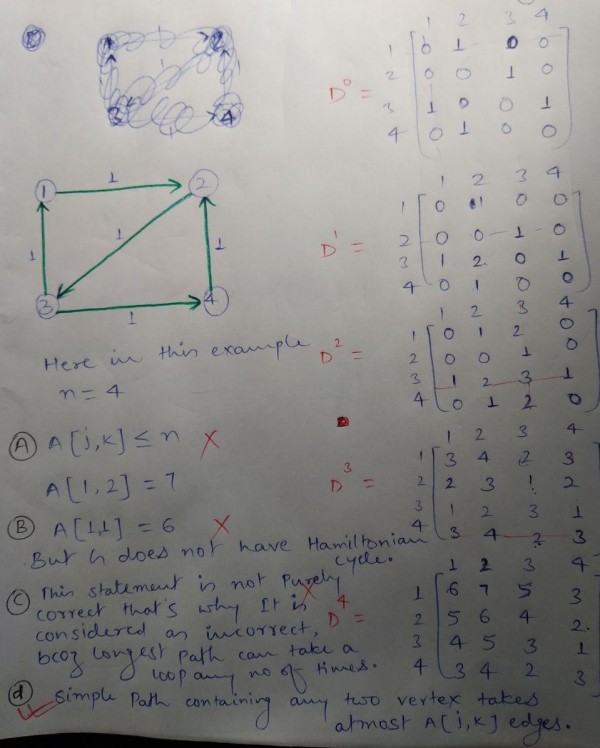 1 2 3 4
D⁰ =
1 0 1 0 0
2 0 0 1 0
3 1 0 0 1
4 0 1 0 0
1 2
3 4
1 1 1 1 1
1 2 3 4
D¹ =
1 0 1 0 0
2 0 0 1 0
3 1 2 0 1
4 0 1 0 0
Here in this example
n = 4
1 2 3 4
D² =
1 0 1 2 0
2 0 0 1 0
3 1 2 3 1
4 0 1 2 0
(A) A[j,k] ≤ n X
A[1,2] = 7
(B) A[1,1] = 6 X
But G does not have Hamiltonian
cycle.
1 2 3 4
D³ =
1 3 4 2 3
2 2 3 1 2
3 1 2 3 1
4 3 4 2 3
(C) This statement is not Purely X
correct that's why It is
considered as incorrect,
bcoz longest Path can take a
loop any no of times.
1 2 3 4
D⁴ =
1 6 7 5 3
2 5 6 4 2
3 4 5 3 1
4 3 4 2 3
(d) Simple Path containing any two vertex takes
atmost A[j,k] edges.